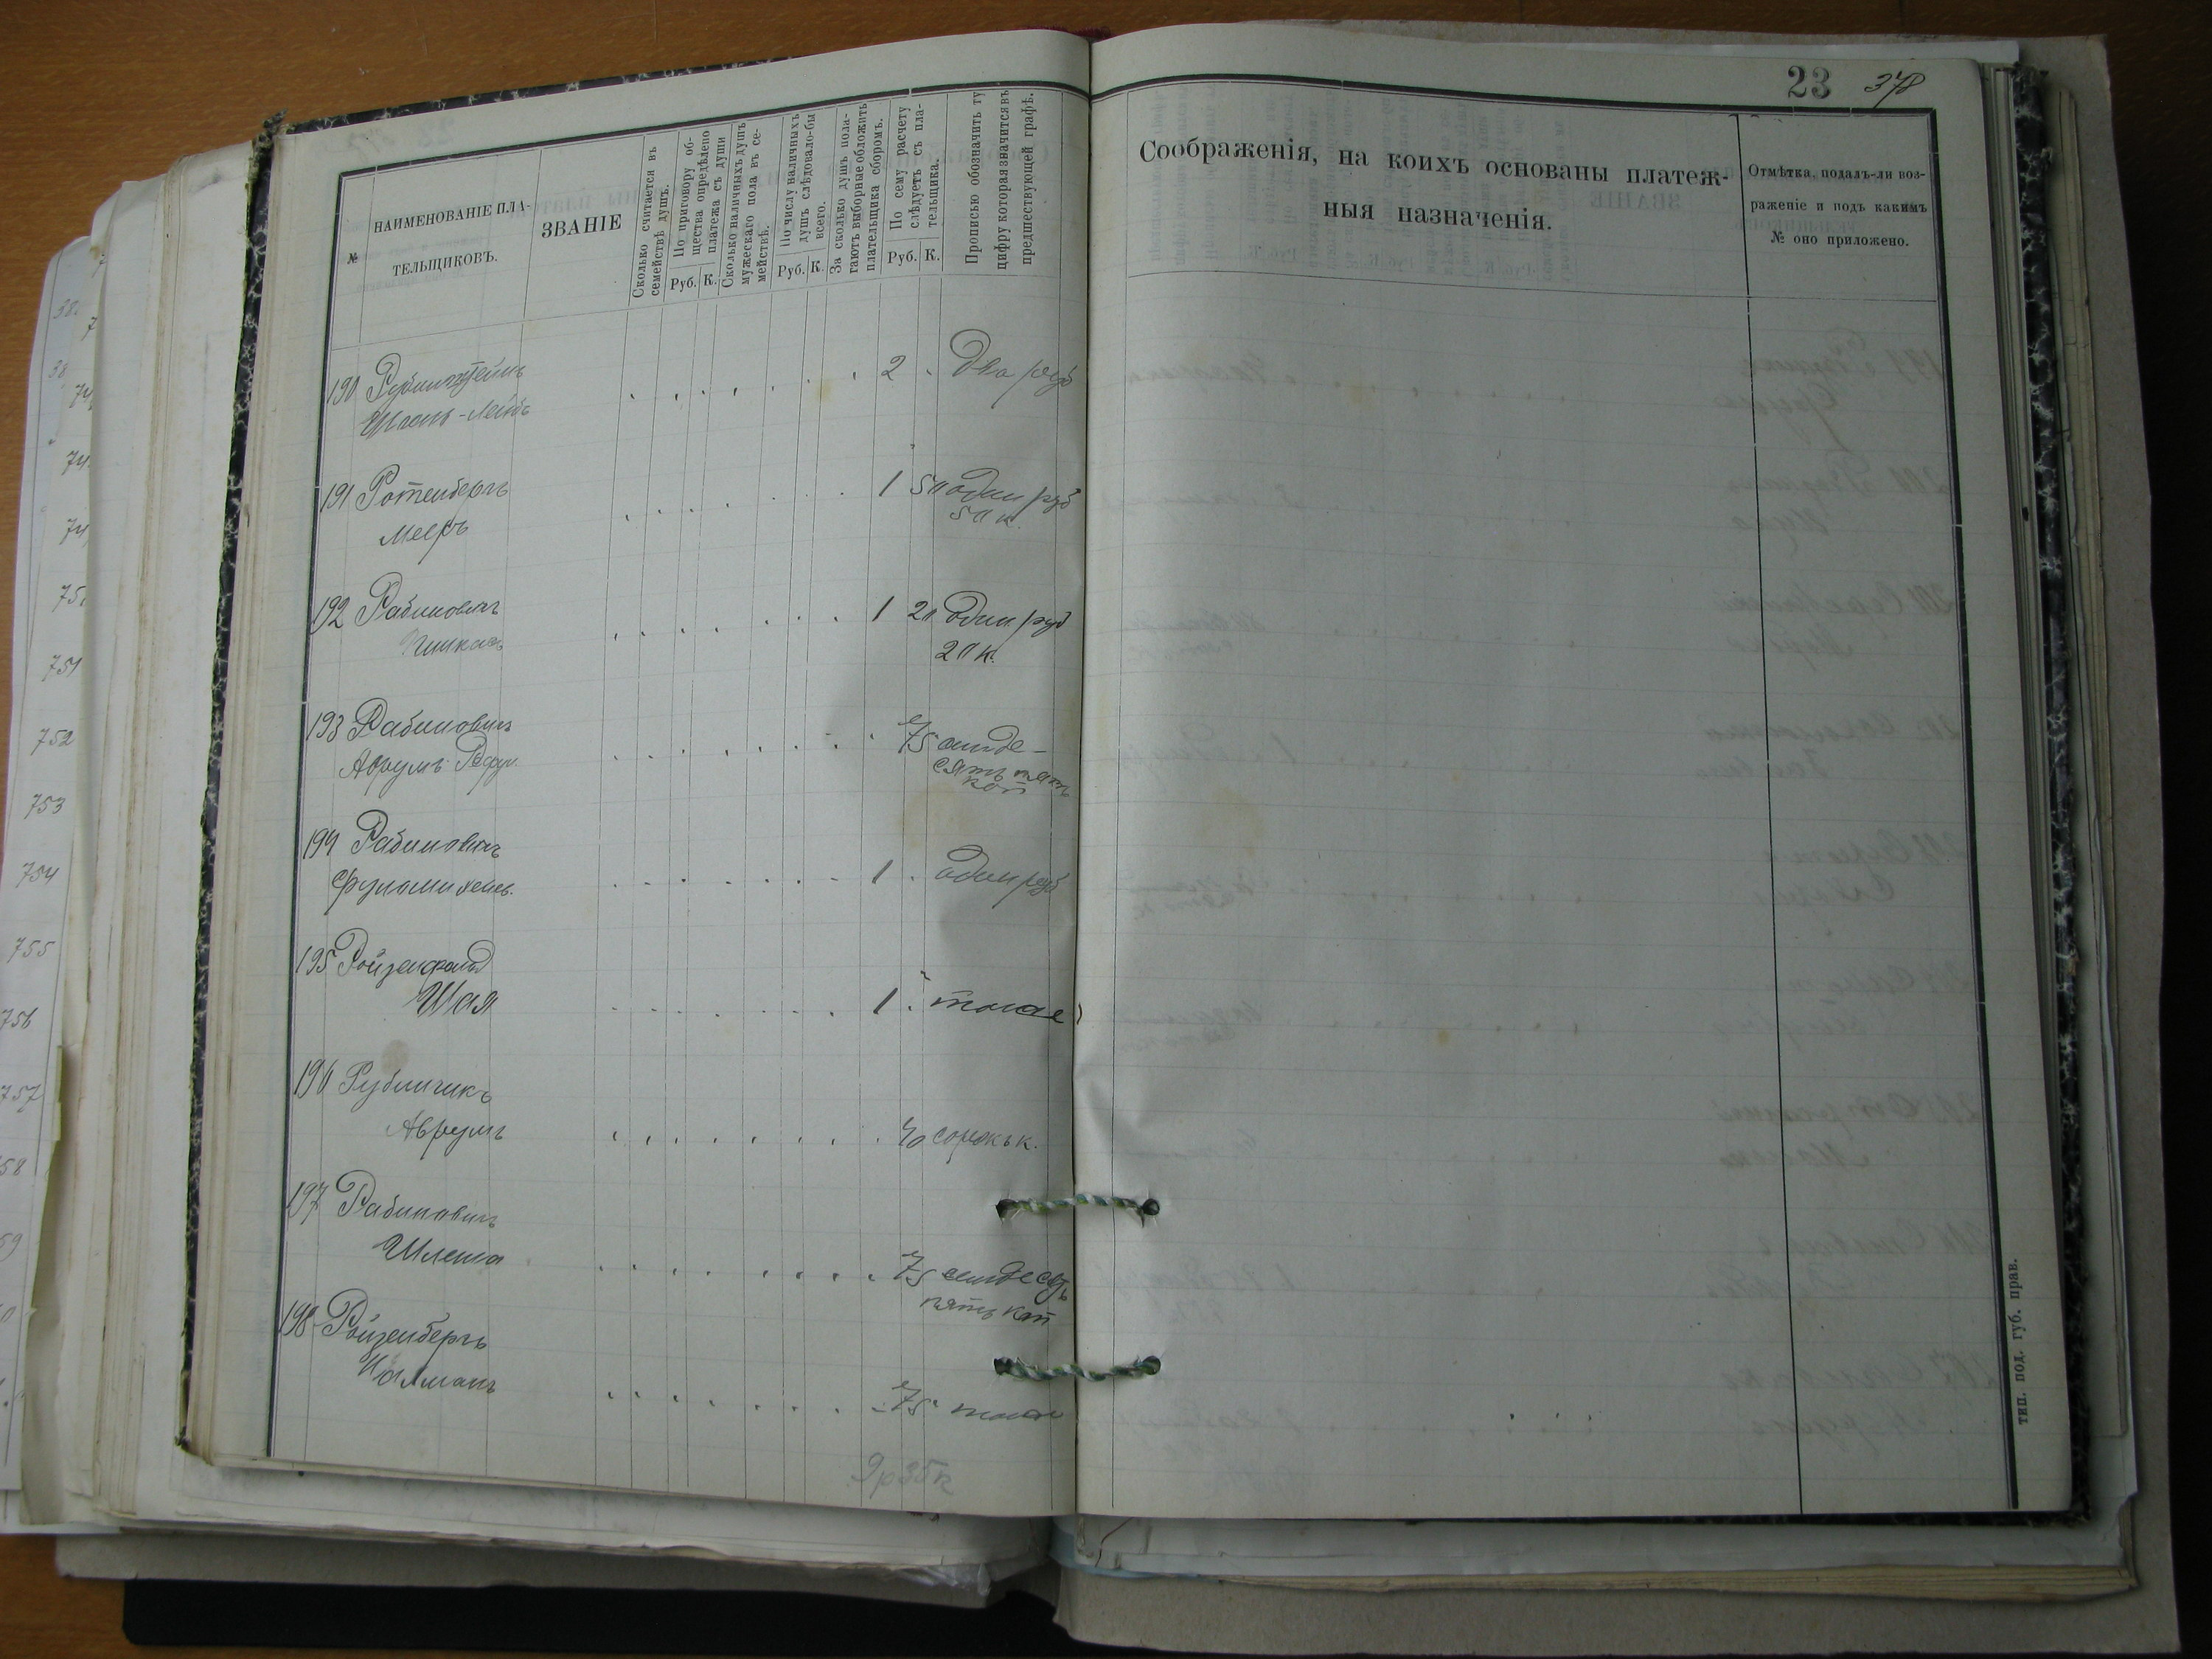 23 378
№
НАИМЕНОВАНІЕ ПЛА-
ТЕЛЬЩИКОВЪ.
ЗВАНІЕ
Сколько считается въ
семействѣ душъ.
По приговору об-
щества опредѣлено
платежа съ души
Руб. К.
Сколько наличныхъ душъ
мужескаго пола въ се-
мействѣ.
По числу наличныхъ
душъ слѣдовало-бы
всего.
Руб. К.
За сколько душъ пола-
гаютъ выборные обложить
плательщика сборомъ.
По сему расчету
слѣдуетъ съ пла-
тельщика.
Руб. К.
Прописью обозначить ту
цифру которая значится въ
предшествующей графѣ.
Соображенія, на коихъ основаны платеж-
ныя назначенія.
Отмѣтка, подалъ-ли воз-
раженіе и подъ какимъ
№ оно приложено.
190 Рубинштейнъ 2 Два руб
-Лейбъ
191 Ротенбергъ 1 50 один руб
Мееръ 50 к.
192 Рабиновичъ 1 20 один руб
Пинкасъ 20 к.
193 Рабиновичъ 75 семде-
Аврумъ сятъ пять
коп
194 Рабиновичъ
1 один руб
195 Ройзенфельд
Шая 1 тоже
196 Рубинчикъ
Аврумъ 40 сорокъ к.
197 Рабиновичъ
Шлема 75 семдесят
пять коп
198 Ройзенбергъ
75 тоже
9р35к
тип. под. губ. прав.
38
74
751
752
753
754
755
756
757
58
59